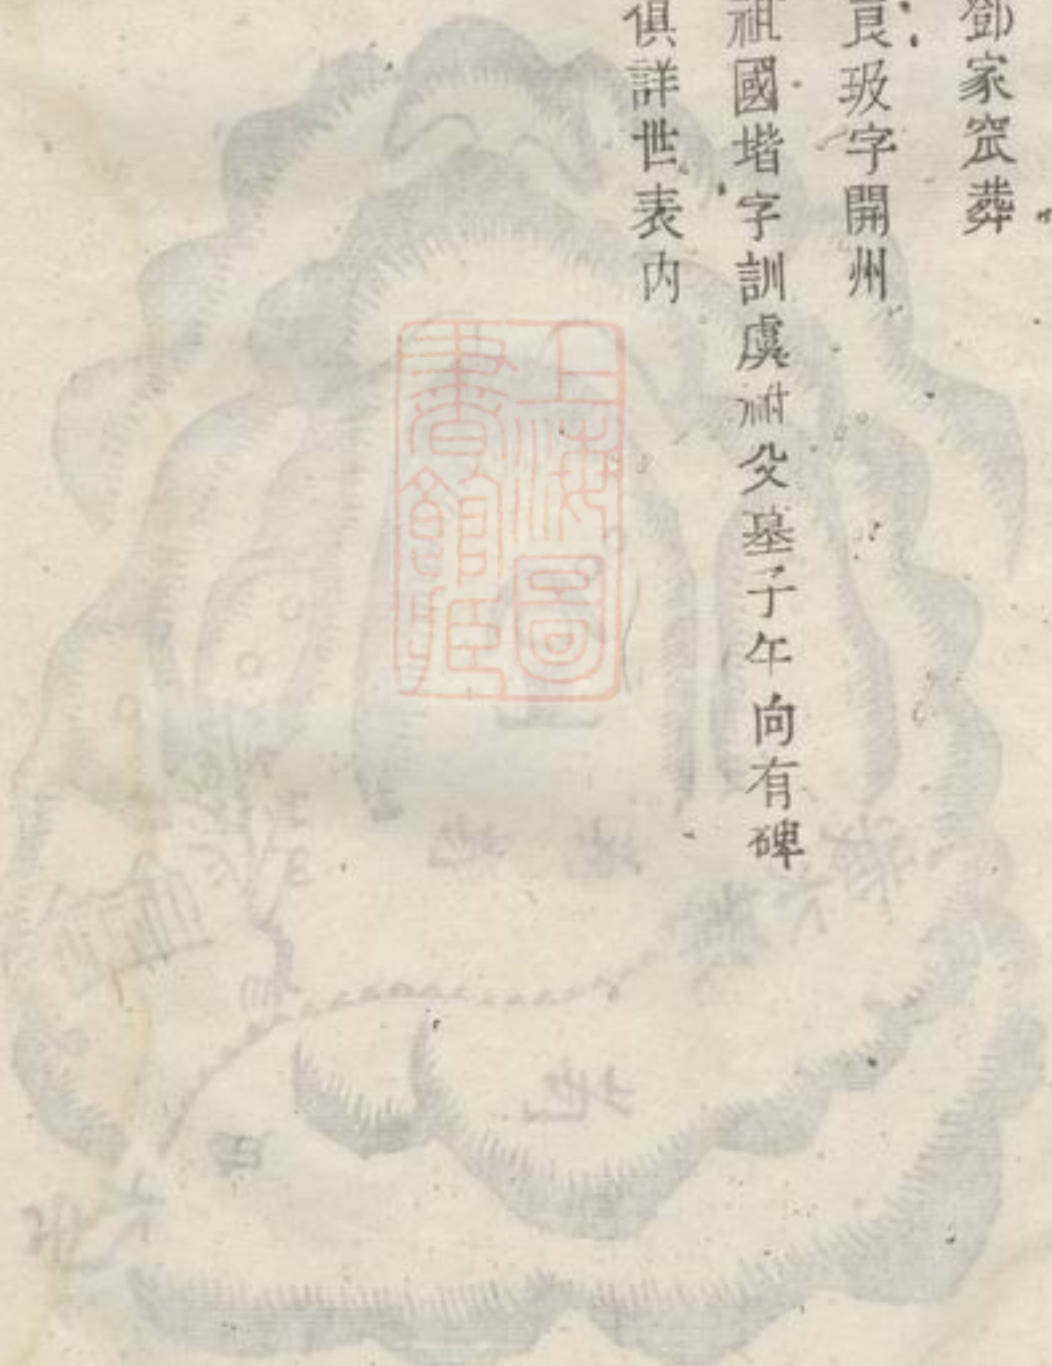 鄧家窊葬
良玻字開州
祖國堦字訓虞祔父墓子午向有碑
俱詳世表内
上海圖
書館藏